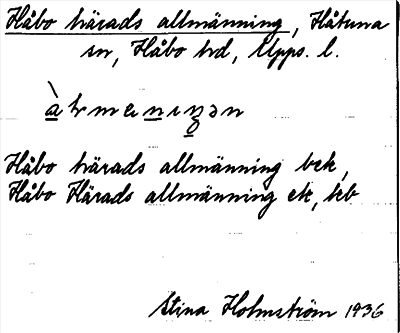 Håbo härads allmänning, Håtuna
sn, Håbo hd, Upps. l.
Håbo härads allmänning bek,
Håbo Härads allmänning ek, jeb
Stina Holmström 1936